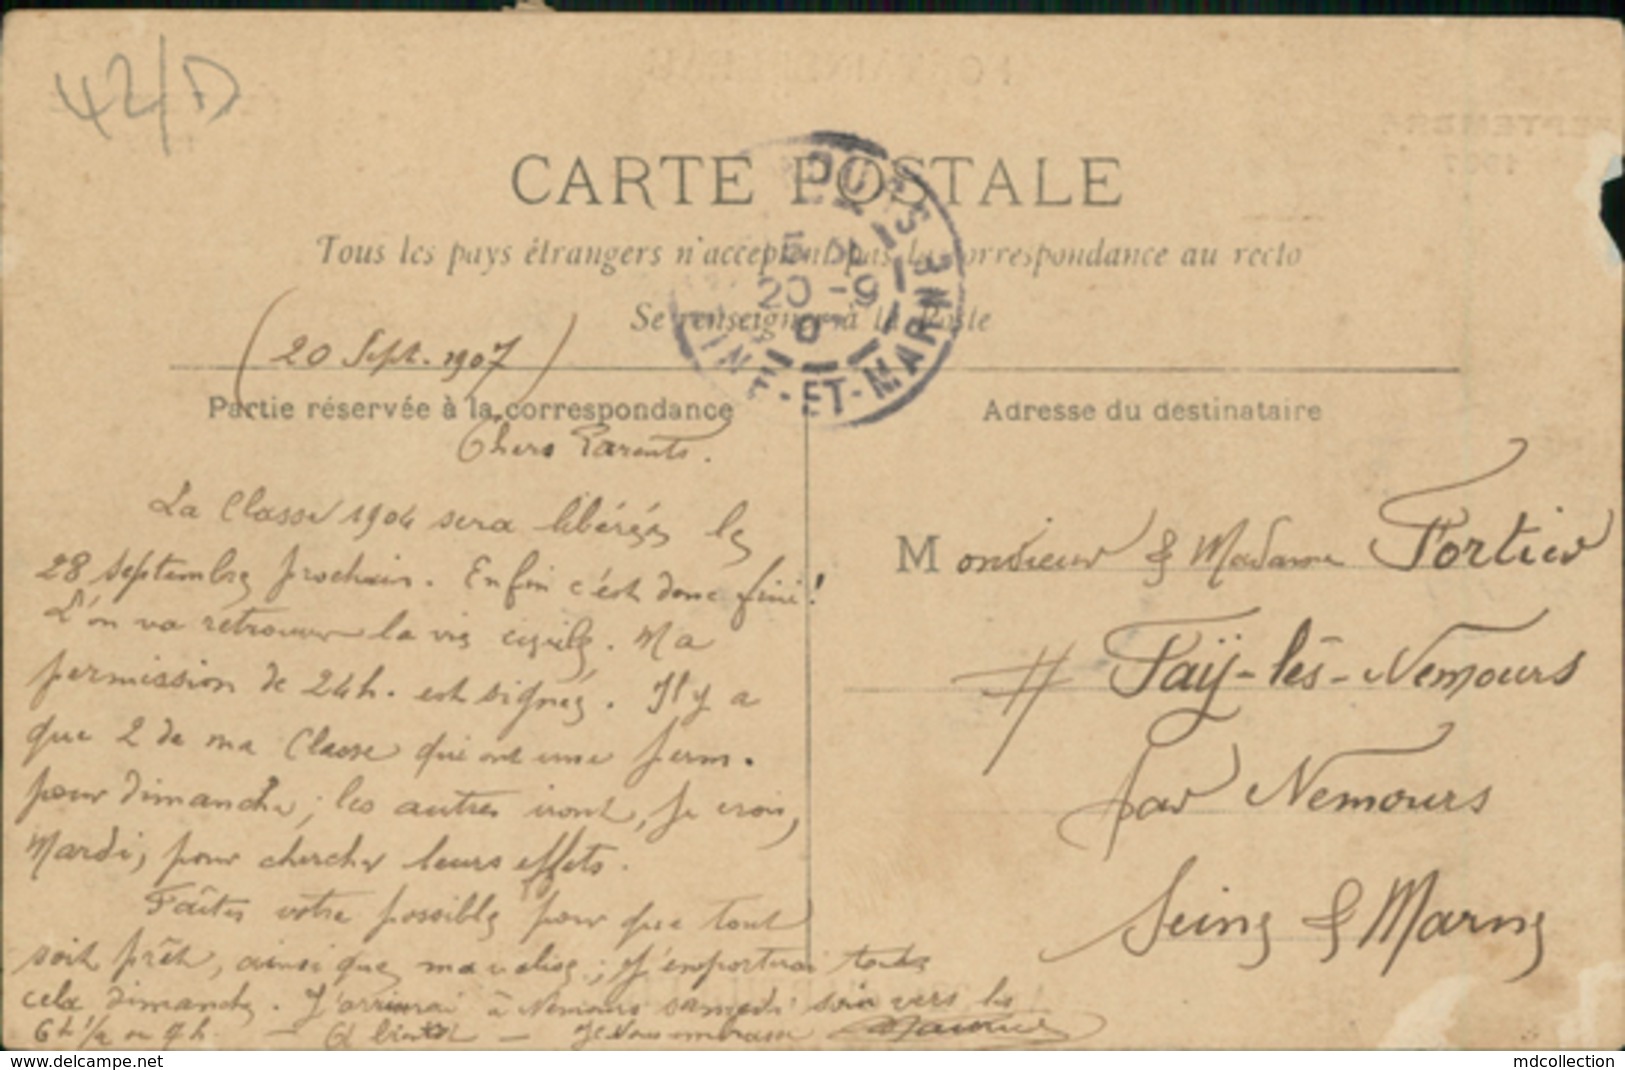 42/D
CARTE POSTALE
Tous les pays étrangers n'acceptent pas la correspondance au recto
Se renseigner à la Poste
20 -9
-ET-MARNE
(20 Sept. 1907)
Partie réservée à la correspondance
Chers Parents.
La Classe 1904 sera libérée le
28 septembre prochain. Enfin c'est donc fini!
L'on va retrouver la vie civile. Ma
permission de 24h. est signée. Il y a
que 2 de ma Classe qui ont une perm.
pour dimanche; les autres iront, je crois,
Mardi, pour chercher leurs effets.
Faites votre possible pour que tout
soit prêt, ainsi que ma valise; j'emporterai toute
cela dimanche. J'arriverai à Nemours samedi soir vers les
6h 1/2 ou 7h. — A bientôt — Je vous embrasse Maurice
Adresse du destinataire
Monsieur & Madame Fortier
# Faÿ-lès-Nemours
par Nemours
Seine & Marne
delcampe.net
mdcollection